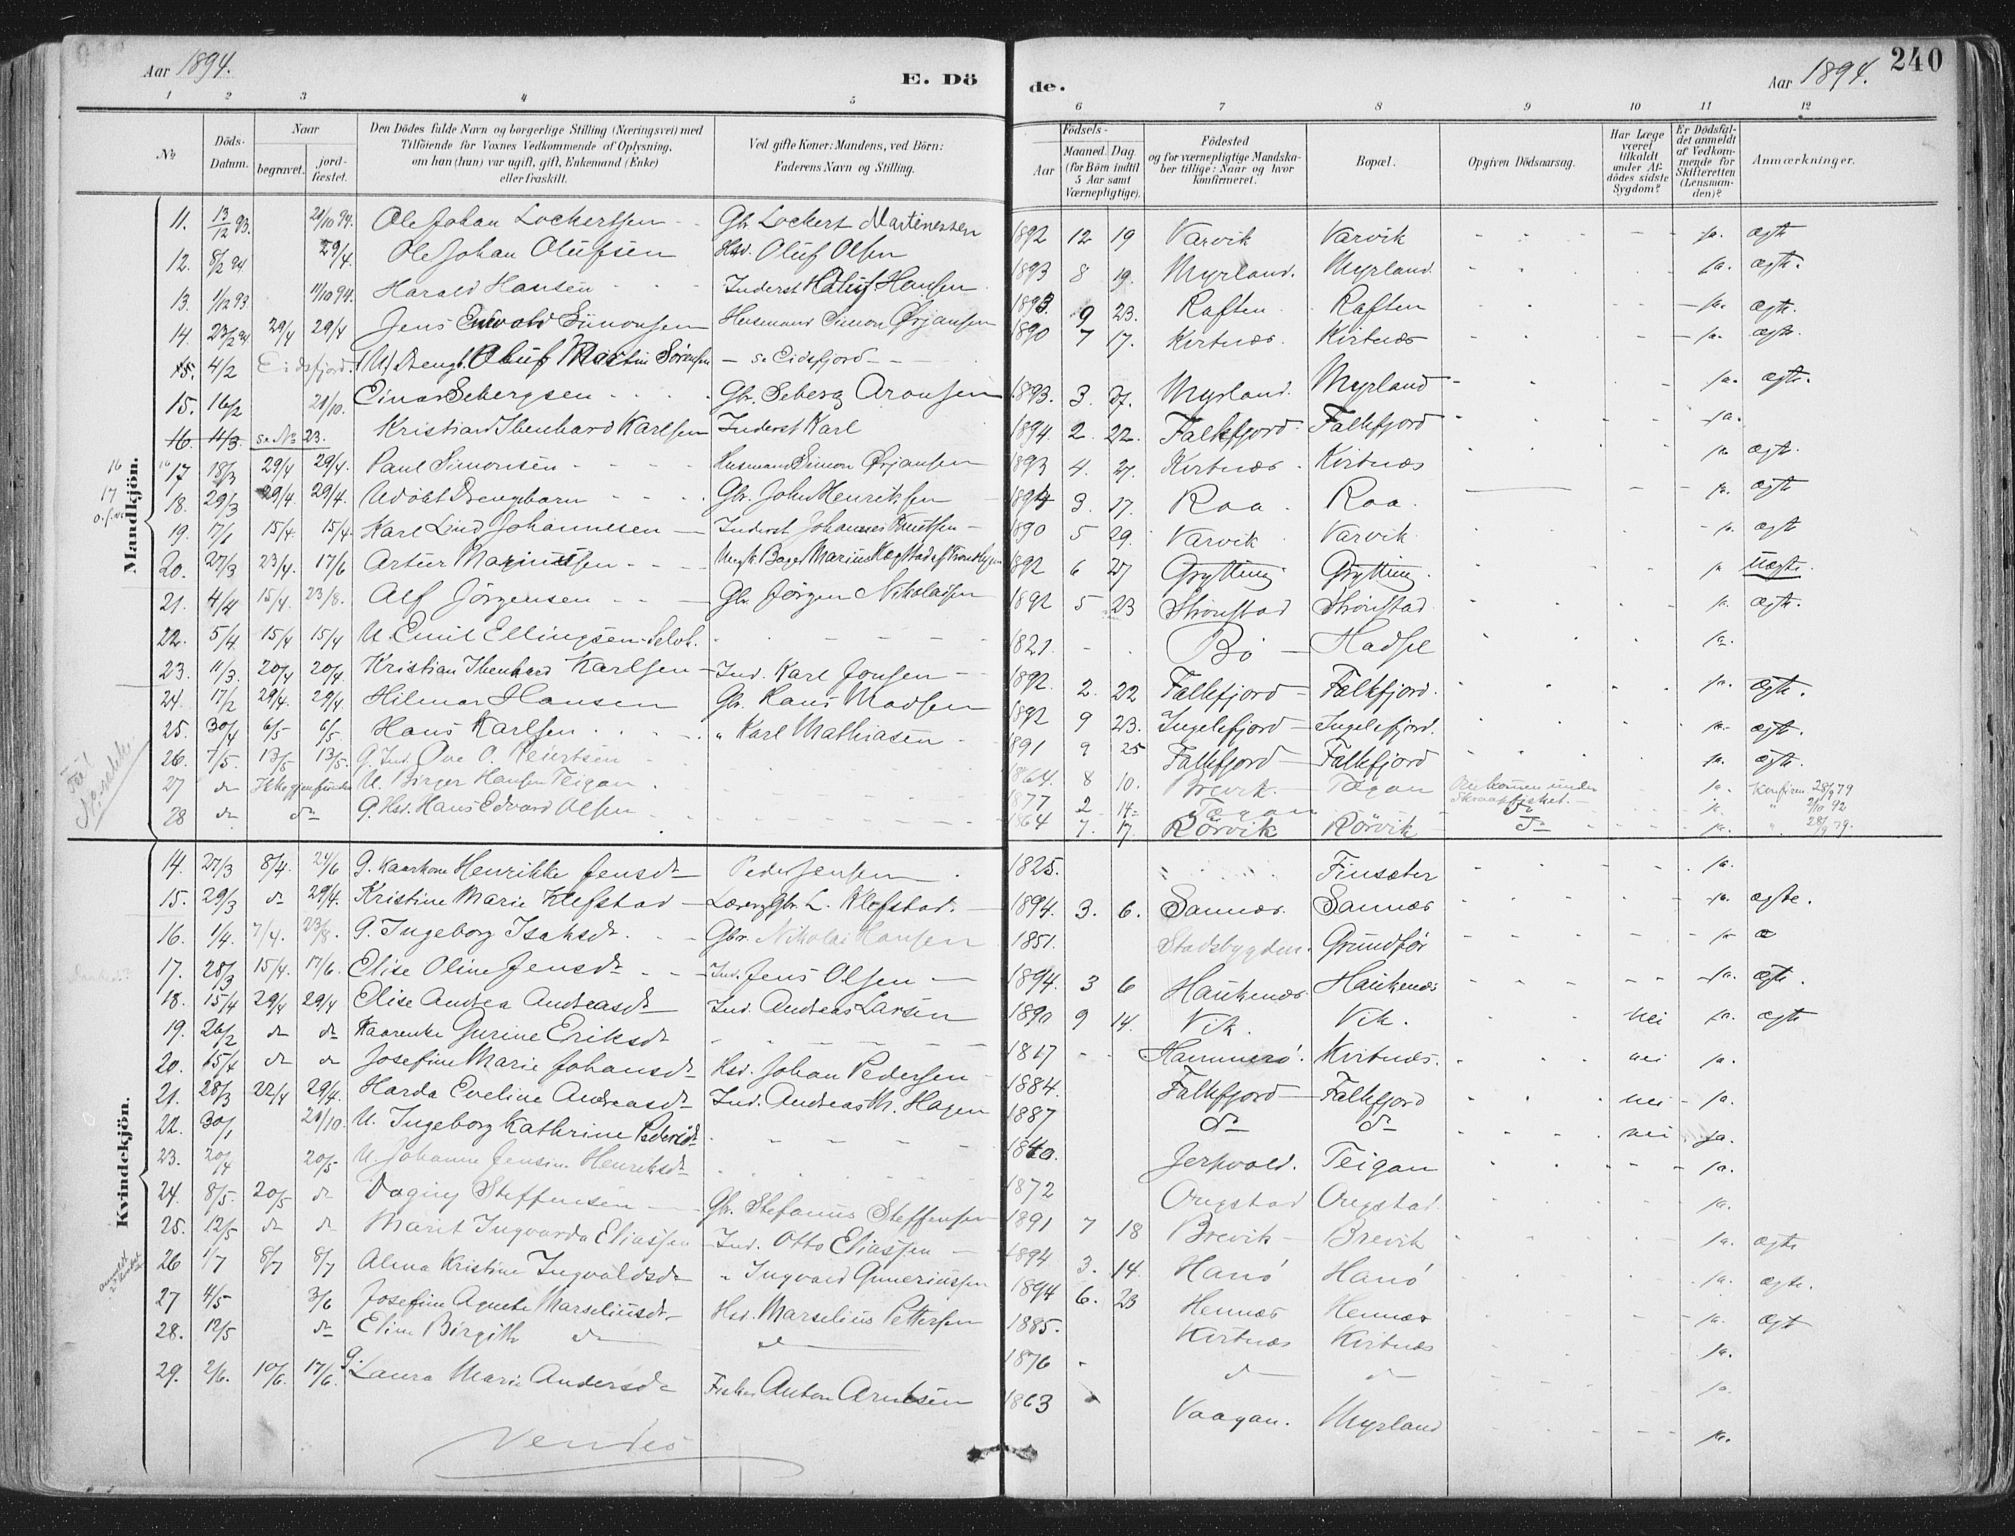 Aar 1894.
E. Dö
de.
Aar 1894.
240
1 2 3 4 5 6 7 8 9 10 11 12
No
Döds-Datum.
Naar
begravet.
jord-fæstet.
Den Dödes fulde Navn og borgerlige Stilling (Næringsvei) med
Tilföiende for Voxnes Vedkommende af Oplysning,
om han (hun) var ugift, gift, Enkemand (Enke)
eller fraskilt.
Ved gifte Koner: Mandens, ved Börn:
Faderens Navn og Stilling.
Födsels-
Aar
Maaned. Dag
(for Börn indtil
5 Aar samt
Værnepligtige).
Födested
og for værnepligtige Mandska-
ber tillige: Naar og hvor
konfirmeret.
Bopæl.
Opgiven Dödsaarsag.
Har Læge
været
tilkaldt
under Af-
dödes sidste
Sygdom?
Er Dödsfal-
det anmeldt
af Vedkom-
mende for
Skifteretten
(Lensman-
den)?
Anmærkninger.
Mandkjön.
11. 13/12 93. 21/10 94. Ole Johan Lockertsen Gbr Lockert Martinessen 1892 12 19 Varvik Varvik ja. ægte
12. 8/2 94 29/4. Ole Johan Olufsen Hsd. Oluf Olsen 1893 8 19. Myrland. Myrland. ja. ægte.
13. 1/12 93 11/10 94. Harald Hansen Inderst Hansen 1893 9 23. Raften Raften ja. ægte.
14. 29/4 29/4 Jens Simonsen Husmand Simon Ørjansen 1890 7 17. Kvitnæs. Kvitnæs ja. ægte.
15. 4/2 Eidsfjord. Oluf Martin Sørensen se Eidsfjord
15. 16/2 21/10. Einar Sebergsen Gbr. Seberg Aronsen 1893. 3. 27. Myrland. Myrland ja. ægte.
16. 11/3. se No 23. Kristian Ibenhard Karlsen Inderst Karl 1894 2. 22. Falkfjord. Falkfjord ja.
17. 18/3 29/4 29/4. Paul Simonsen Husmand Simon Ørjansen 1893 4. 27. Kvitnæs. Kvitnæs ja ægte.
18. 29/3 29/4. 29/4. Udöbt Drengebarn Gbr. John Henriksen 1894 3. 17. Roa. Roa. ja. ægte
19. 7/1 15/4. 15/4. Karl Lind Johannesen Inderst Johannes Knutsen 1890 5 29. Varvik Varvik ja. ægte
20. 27/3 23/4. 17/6 Artur Mariussen 1892 6 27 Grytting Grytting. ja uægte.
21. 4/4 15/4. 23/8. Alf Jörgensen Gbr Jörgen Nikolaisen 1892 5 23 Strönstad Strönstad ja. ægte.
22. 5/4. 15/4 15/4 U. Emil Ellingsen 1821. Bö Hadsel ja.
23. 11/3. 20/4 20/4. Kristian Ibenhard Karlsen Ind. Karl Jonsen 1892. 2. 22 Falkfjord Falkfjord. ja. ægte.
24. 17/2 29/4. 29/4 Hilmar Hansen Gbr. Hans Madsen 1892 9 23. Ingelsfjord Ingelsfjord. ja. ægte.
25. 30/4 6/5 6/5 Hans Karlsen " Karl Mathiasen 1891 9 25 Falkfjord Falkfjord ja. ægte.
26. 7/5 13/5 13/5. G. Ind. Ove O. 1864. 8 10. Brevik. Tegan Omkommen under Skreifisket. ja. Konfirm 28/9 79
27 do Ikke gjenfunden U. Birger Hansen Teigan 1877 2 14 Tegan do ja. " 2/10 92
28 do do G. Hsd. Hans Edvard Olsen 1864 7. 7. Rörvik Rörvik do ja. " 28/9 79.
Kvindekjön.
14. 27/3 8/4. 24/6 G. Kaarkone Henrikke Jensdr Peder Jensen 1825. Finsæter ja.
15. 29/3 do 29/4. Kristine Marie Klefstad Lærer, Gbr. L. Klefstad. 1894. 3. 6. Sannæs. Sannæs ja. ægte.
16. 1/4. 7/4. 23/8. G. Ingeborg Isaksdr. Gbr. Nikolai Hansen 1851. Stadsbygden. Grundfør ja
17. 28/3 15/4. 17/6. Elise Oline Jensdr Ind. Jens Olsen 1894. 3 6 Haukenæs. Haukenæs ja. ægte.
18. 15/4 29/4 29/4 Elise Andrea Andreasdr Ind. Andreas Larsen 1890 9 14. Vik. Vik. nei ja. ægte
19. 26/2 do do Kaarenke Gurine Eriksdr 1817 Hammerö. Kvitnæs. nei ja.
20. 15/4 do do Josefine Marie Johansdr Hsd. Johan Pedersen 1884. Falkfjord Falkfjord nei ja.
21. 28/3 22/4 29/4. Harda Eveline Andreasdr Ind. Andreas M. Hagen 1887 do do nei ja.
22. 30/1 21/10. U. Ingeborg Kathrine Pedersdr 1840. Jerpvold. Teigan ja.
23. 20/4 20/5 U. Johanne Jensine Henriksdr 1872 Ongstad Ongstad. ja.
24. 8/5. 20/5 do Dagny Steffensen Gbr. Stefanus Steffensen 1891 7 18 Brevik Brevik ja. ægte
25. 12/5 do do Marit Ingvarda Eliassen Ind. Otto Eliassen 1894 3. 14. Hanö Hanö ja. ægte.
26 1/7 8/7 8/7 Alma Kristine Ingvaldsdr " Ingvald Guneriussen 1894 6. 23 Hennæs Hennæs ja. ægte
27 4/5 3/6 Josefine Agnete Marseliusdr Hsd. Marselius Pettersen 1885. Kvitnæs Kvitnæs ja.
28. 12/5 do Eline Birgith do do 1876 do do ja.
29. 2/6. 10/6. 17/6. G. Laura Marie Andersdr Fisker Anton Arntsen 1863 Vaagan. Myrland ja.
Vendes